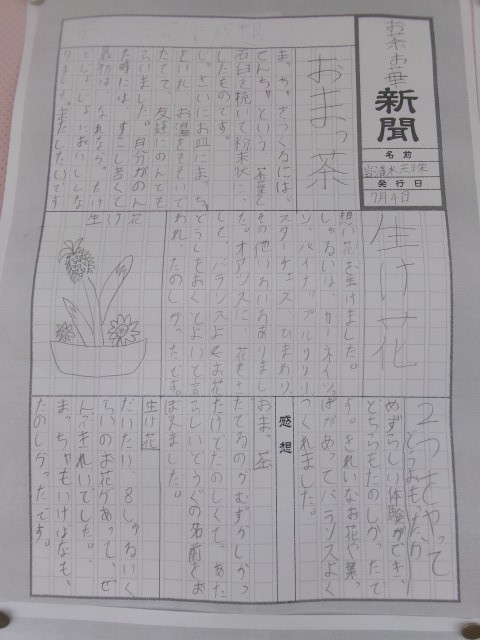 お茶お華
新聞
名前
発行日
7月4日
おまっ茶
まっちゃをつくるには、
てんちゃという 茶葉を
石臼で挽いて粉末状に
したものです。
たてて、友達にのんでも
らいました。自分がのん
た時には、すこし苦くて
生け花
想い花を生けました。
しゅるいは、カーネイショ
ン、パイナップルリリー
スターチェス、ひまわり、
その他いろいろありまし
た。オアシスに、花をさ
して、バランスよくお花
どうしをおくとよいと言
われ、たのしかったです。
花
生け
2つをやって
どうおもったか
めずらしい体験ができ、
どちらもたのしかったで
す。きれいなお花や葉っ
ぱがあってバランスよく
つくれました。
感想
おまっ茶
たてるのがむずかしかっ
たけどたのしくて、あた
らしいどうぐの名前をお
ぼえました。
生け花
だいたい 8しゅるいく
らいのお花があって、ぜ
んぶきれいでした。
まっちゃもいけばなも、
たのしかったです。